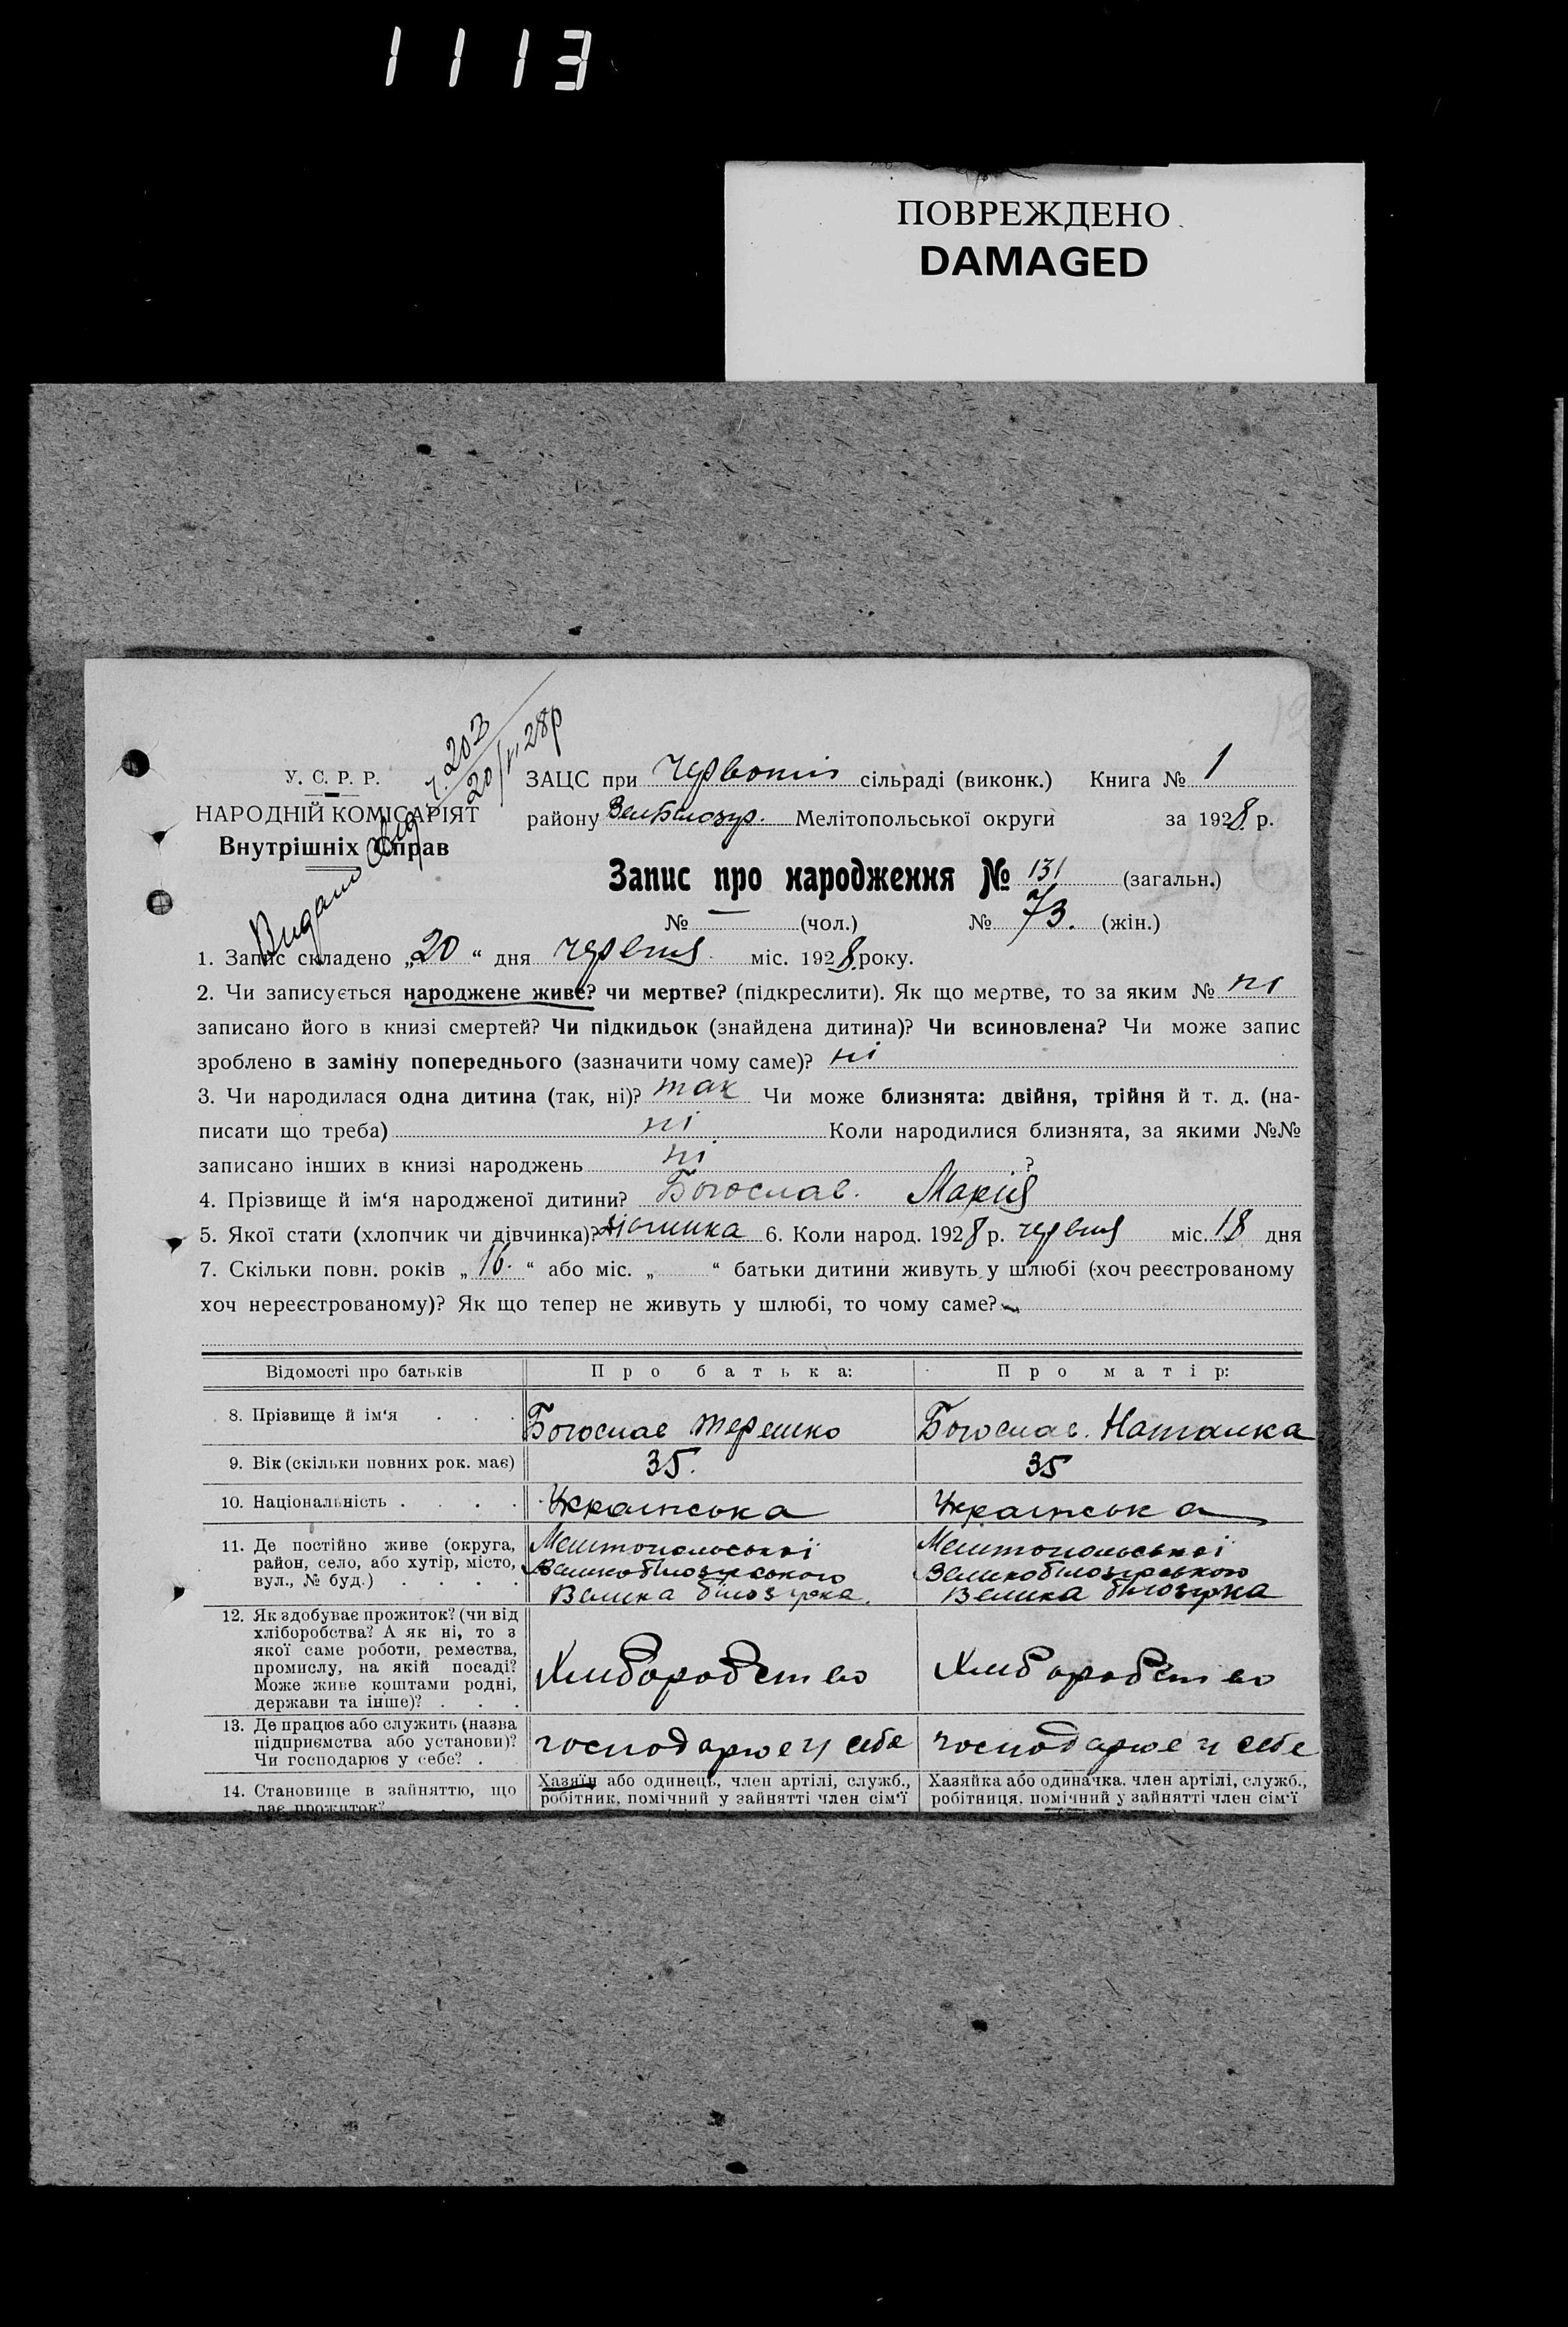 1113
ПОВРЕЖДЕНО
DAMAGED
У. С. Р. Р.
НАРОДНІЙ КОМІСАРІЯТ
Внутрішніх Справ
Видано
ч. 203
20/VI 28р
ЗАЦС при сільраді (виконк.) Книга № 1
району Вел Білозір. Мелітопольської округи за 1928 р.
Запис про народження № 131 (загальн.)
№ — (чол.) № 73. (жін.)
1. Запис складено „20“ дня червня міс. 1928 року.
2. Чи записується народжене живе? чи мертве? (підкреслити). Як що мертве, то за яким № ні
записано його в книзі смертей? Чи підкидьок (знайдена дитина)? Чи всиновлена? Чи може запис
зроблено в заміну попереднього (зазначити чому саме)? ні
3. Чи народилася одна дитина (так, ні)? так Чи може близнята: двійня, трійня й т. д. (на-
писати що треба) ні Коли народилися близнята, за якими №№
записано інших в книзі народжень ні ?
4. Прізвище й ім‘я народженої дитини? Богослав. Марія
5. Якої стати (хлопчик чи дівчинка)? дівчинка 6. Коли народ. 1928 р. червня міс. 18 дня
7. Скільки повн. років „16.“ або міс. „ “ батьки дитини живуть у шлюбі (хоч реєстрованому
хоч нереєстрованому)? Як що тепер не живуть у шлюбі, то чому саме?
Відомості про батьків Про батька: Про матір:
8. Прізвище й ім‘я . . . Богослав Терешко Богослав. Наталка
9. Вік (скільки повних рок. має) 35. 35
10. Національність . . . . Українська Українська
11. Де постійно живе (округа, район, село, або хутір, місто, вул., № буд.) . . . .
Мелітопольської Мелітопольської
Великобілозірського Великобілозірського
Велика білозірка. Велика білозірка
12. Як здобуває прожиток? (чи від
хліборобства? А як ні, то з
якої саме роботи, ремества,
промислу, на якій посаді?
Може живе коштами родні,
держави та інше)? . . .
Хліборобство Хліборобство
13. Де працює або служить (назва
підприємства або установи)?
Чи господарює у себе? .
господарює у себе господарює у себе
14. Становище в зайняттю, що
дає прожиток?
Хазяїн або одинець, член артілі, служб.,
робітник, помічний у зайнятті член сім‘ї
Хазяйка або одиначка. член артілі, служб.,
робітниця, помічний у зайнятті член сім‘ї